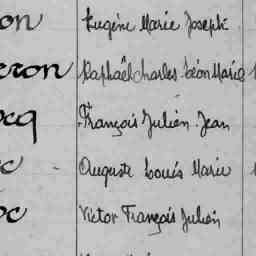 on Eugène Marie Joseph
eron Raphaël Charles Léon Marie
ocq François Julien Jean
c Auguste Louis Marie
oc Victor François Julien